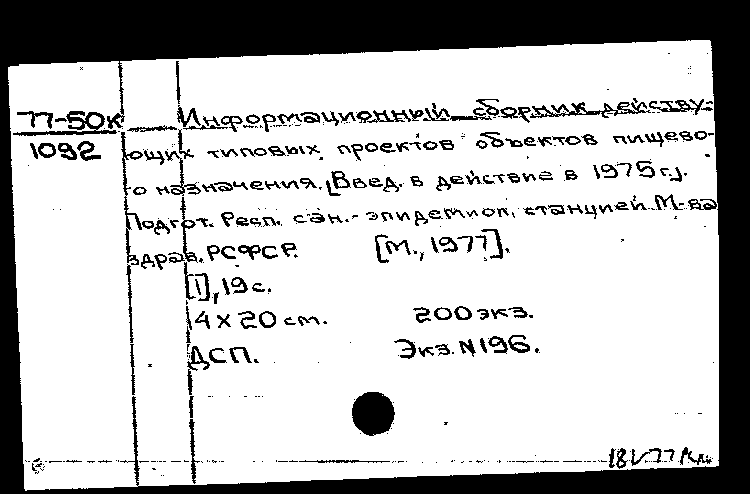 77-50к Информационный сборник действу-
1092 ющих типовых проектов объектов пищево-
го назначения. [Введ. в действие в 1975 г.].
Подгот. Респ. сан.-эпидемиол. станцией М-ва
здрав. РСФСР. [М., 1977].
[1], 19 с.
14 x 20 см. 200 экз.
ДСП. Экз. N 196.
18 V 77